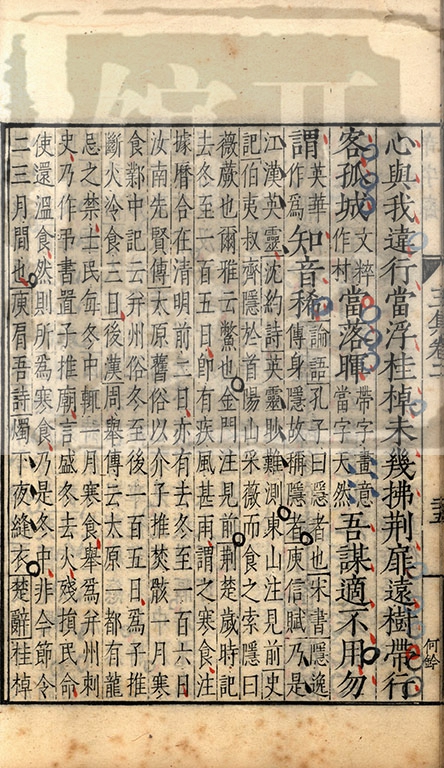 心與我違行當浮桂棹未幾拂荊扉遠樹帶行
客孤城文粹作村當落暉帶字畫意當字天然吾謀適不用勿
謂英華作爲知音稀論語孔子曰隱者也宋書隱逸傳身隱故稱隱者庾信賦乃是
江漢英靈沈約詩英靈眇難測東山注見前史
記伯夷叔齊隱於首陽山采薇而食之索隱曰
薇蕨也爾雅云鱉也金門注見前荊楚歲時記
去冬至一百五日即有疾風甚雨謂之寒食注
據曆合在清明前二日亦有去冬至一百六日
汝南先賢傳太原舊俗以介子推焚骸一月寒
食鄴中記云并州俗冬至後一百五日爲子推
斷火冷食三日後漢周舉傳云太原一都有龍
忌之禁士民每冬中輒一月寒食舉爲并州刺
史乃作弔書置子推廟言盛冬去火殘損民命
使還溫食然則所爲寒食乃是冬中非今節令
二三月間也庾肩吾詩燭下夜縫衣楚辭桂棹